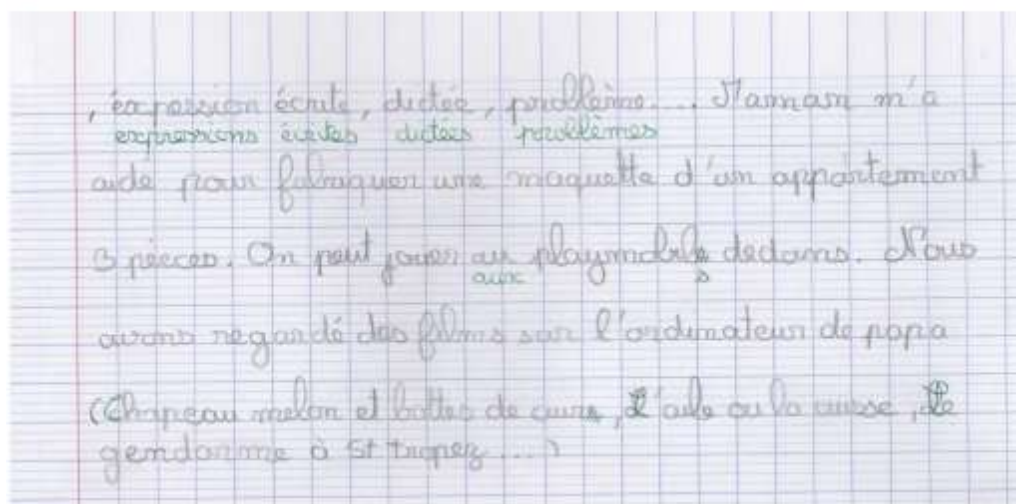 , expression écrite, dictée, problème... Maman m'a
expressions écrites dictées problèmes
aidé pour fabriquer une maquette d'un appartement
3 pièces. On peut jouer au playmobile dedans. Nous
aux s
avons regardé des films sur l'ordinateur de papa
(Chapeau melon et bottes de cuire, L'aile ou la cuisse, Le
gendarme à St tropez...)